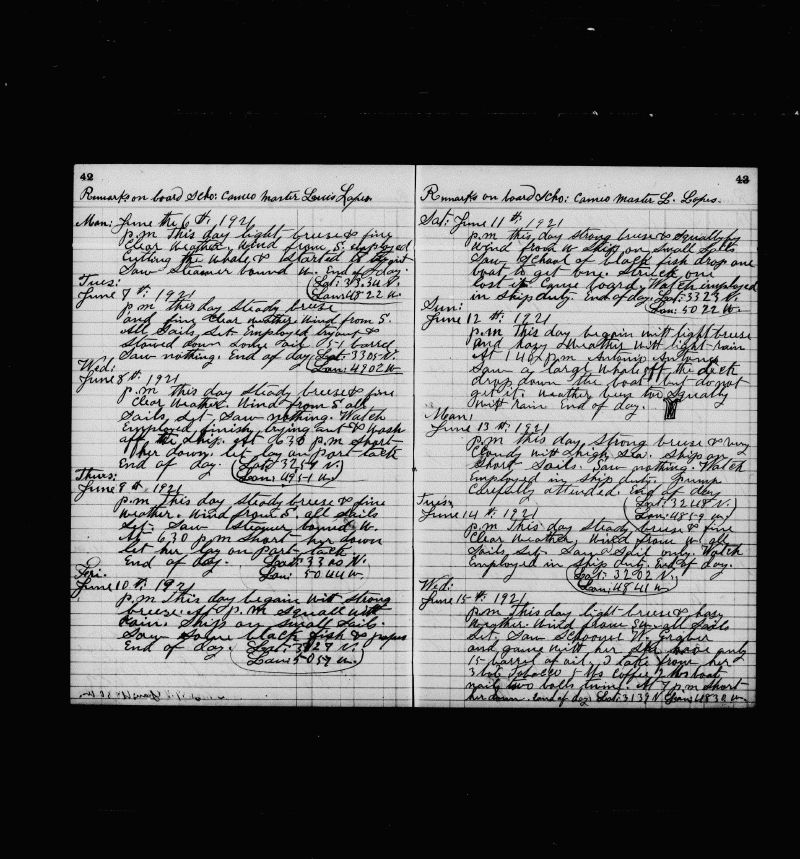 42
Remarks on board Scho: Cameo Master Louis Lopes
Mon: June the 6th 1921
p.m This day light breeze & fine
Clear Weather, Wind from S. employed
Cutting the Whale, & started to
Saw Steamer bound W. End of day.
Tues: Lat: 33.30 N.
June 7th 1921 Lon: 48 22 W.
p.m this day Steady breeze
and fine Clear weather Wind from S.
All Sails Set Employed trying &
Stowed down body 51 barrel
Saw nothing. End of day Lat: 33 05 N.
Wed: Lon: 49 02 W.
June 8th 1921
p.m This day Steady breeze & fine
Clear Weather. Wind from S all
Sails Set Saw nothing. Watch
Employed finish trying out & Wash
off the Ship. At 6 30 p.m Short
her down. let lay on port tack
End of day. Lat: 32 54 N.
Thurs: Lon: 49 51 W.
June 9th 1921
p.m This day Steady breeze & fine
Weather. Wind from S. all Sails
Set Saw Steamer bound W.
At 6 30 p.m Short her down
let her lay on port tack
End of day. Lat: 33 00 N.
Fri: Lon: 50 44 W.
June 10th 1921
p.m This day begain witt strong
breeze. At p.m Squall witt
Rain. Ship on small Sails.
Saw Some black fish &
End of day. Lat: 33 29 N.
Lon: 50 59 W.
43
Remarks on board Scho: Cameo Master L. Lopes.
Sat: June 11th 1921
p.m this day strong breeze & Squally
Wind from W Ship on Small Sails
Saw School of black fish drop one
boat to get one. Struck one
lost it. Came board, Watch employed
in Ship duty. End of day. Lat: 33 23 N.
Sun: Lon: 50 22 W.
June 12th 1921
p.m This day begain witt light breeze
and hazy Weather witt light rain
At 1 40 p.m Antonio Antones
Saw a large Whale off the deck
drop down the boat but do not
get it. Weather very Squally
Witt rain End of day.
Mon:
June 13th 1921
p.m this day Strong breeze & very
Cloudy witt high Sea. Ship on
Short Sails. Saw nothing. Watch
Employed in Ship duty. Pump
Carefully attended. End of day
Tues: Lat: 32 48 N.
June 14th 1921 Lon: 48 59 W.
p.m This day Steady breeze & fine
Clear Weather, Wind from W all
Sails Set Saw a Spit only. Watch
Employed in Ship duty. End of day.
Lat: 32 02 N.
Wed: Lon: 48 41 W.
June 15th 1921
p.m This day light breeze & hazy
Weather. Wind from all Sails
Set. Saw Schooner W. Graber
and game witt her She have only
15 barrel of oil, I take from her
3 Tobacco 5 lbs Coffee 2 lbs boat
nails two bolts twine. At 7 p.m Short
her down. End of day Lat: 31 39 N. Lon: 48 30 W.